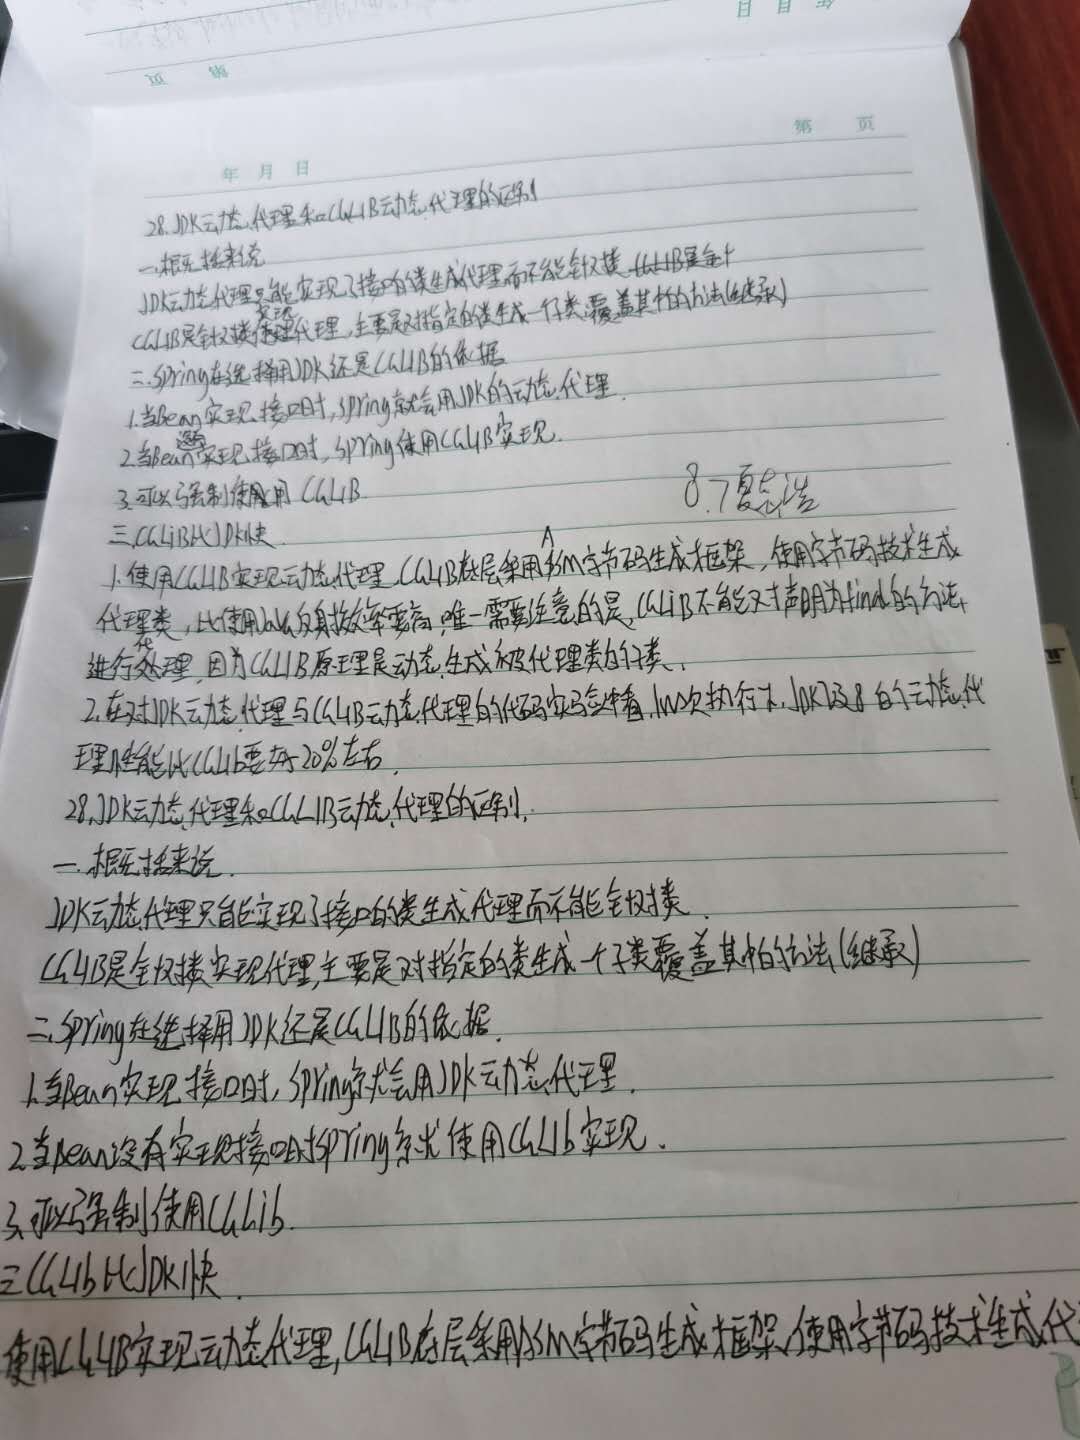 第 页
年 月 日
第 页
年 月 日
28.JDK动态代理和CGLIB动态代理的区别
一.概括来说
JDK动态代理只能实现了接口的类生成代理而不能针对类.CGLIB是针
CGLIB是针对类实现代理,主要是对指定的类生成一个子类,覆盖其中的方法(继承)
二.Spring在选择用JDK还是CGLIB的依据
1.当Bean实现接口时,Spring就会用JDK的动态代理.
2.当Bean没有实现接口时,Spring使用CGLIB实现.
3.可以强制使用用CGLIB
8.7 夏志浩
三.CGLiB比JDK快
1.使用CGLIB实现动态代理,CGLIB底层采用ASM字节码生成框架,使用字节码技术生成
代理类,比使用Java反射效率要高,唯一需要注意的是,CGLiB不能对声明为final的方法
进行代理,因为CGLIB原理是动态生成被代理类的子类.
2.在对JDK动态代理与CGLIB动态代理的代码实验中看,1W次执行下,JDK7及8的动态代
理性能比CGLib要好20%左右.
28.JDK动态代理和CGLIB动态代理的区别.
一.概括来说.
JDK动态代理只能实现了接口的类生成代理而不能针对类.
CGLIB是针对类实现代理,主要是对指定的类生成一个子类覆盖其中的方法(继承)
二.Spring在选择用JDK还是CGLIB的依据.
1.当Bean实现接口时,Spring就会用JDK动态代理.
2.当Bean没有实现接口时Spring就使用CGLib实现.
3.可以强制使用CGLib.
三CGLib比JDK快.
使用CGLIB实现动态代理,CGLIB底层采用ASM字节码生成框架,使用字节码技术生成代